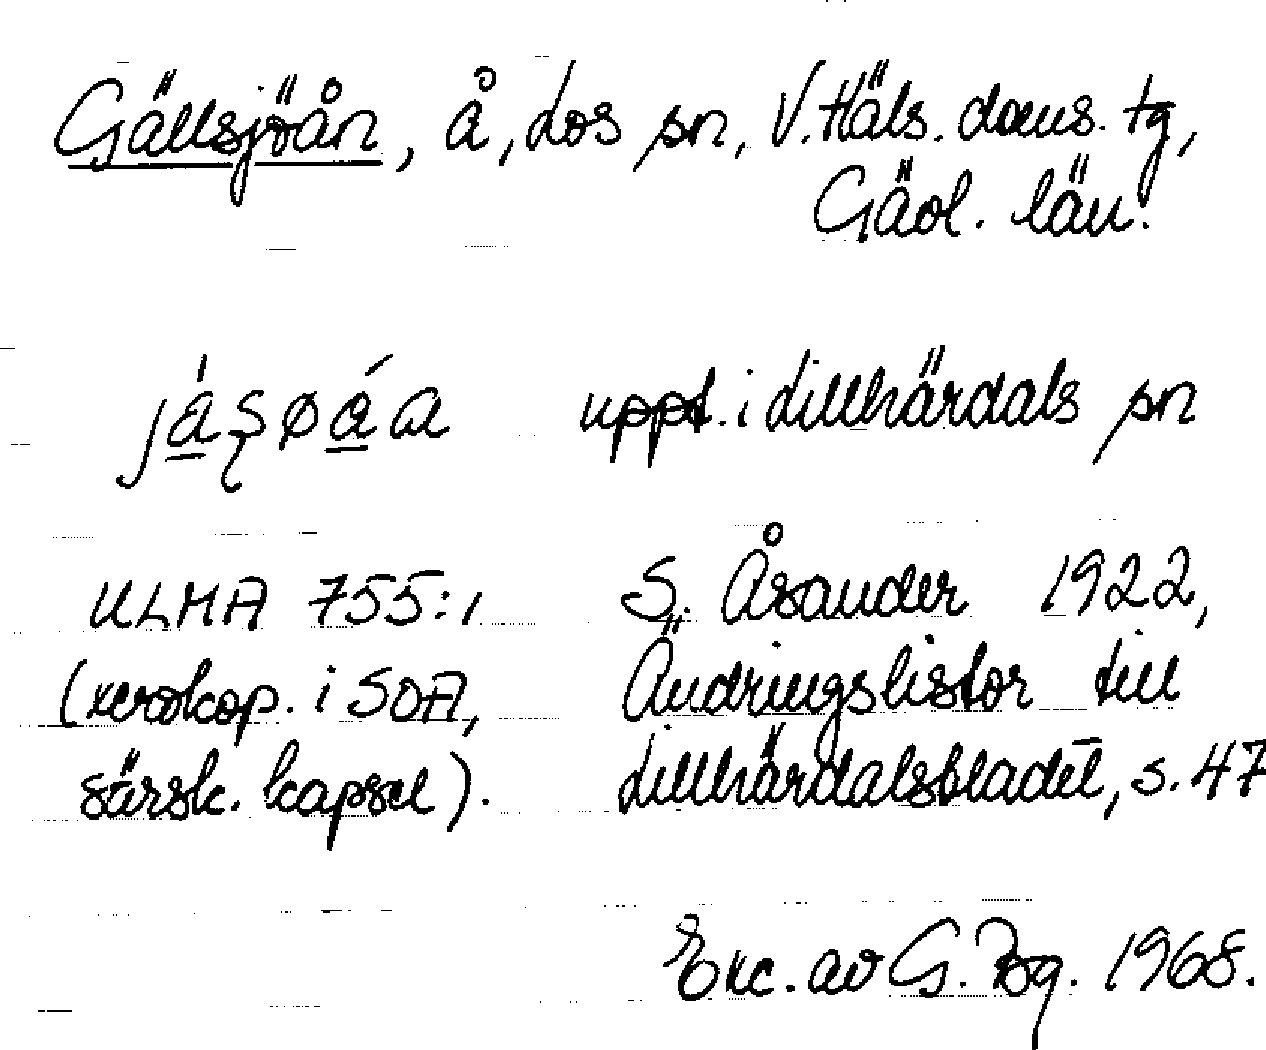 Gällsjöån, å, Los sn, V. Häls. doms. tg,
Gävl. län.
uppt. i Lillhärdals sn
ULMA 755:1 S. Åsander 1922,
(xerokop. i SOA, Ändringslistor till
särsk. kapsel). Lillhärdalsbladet, s. 47
Exc. av G. Bg. 1968.